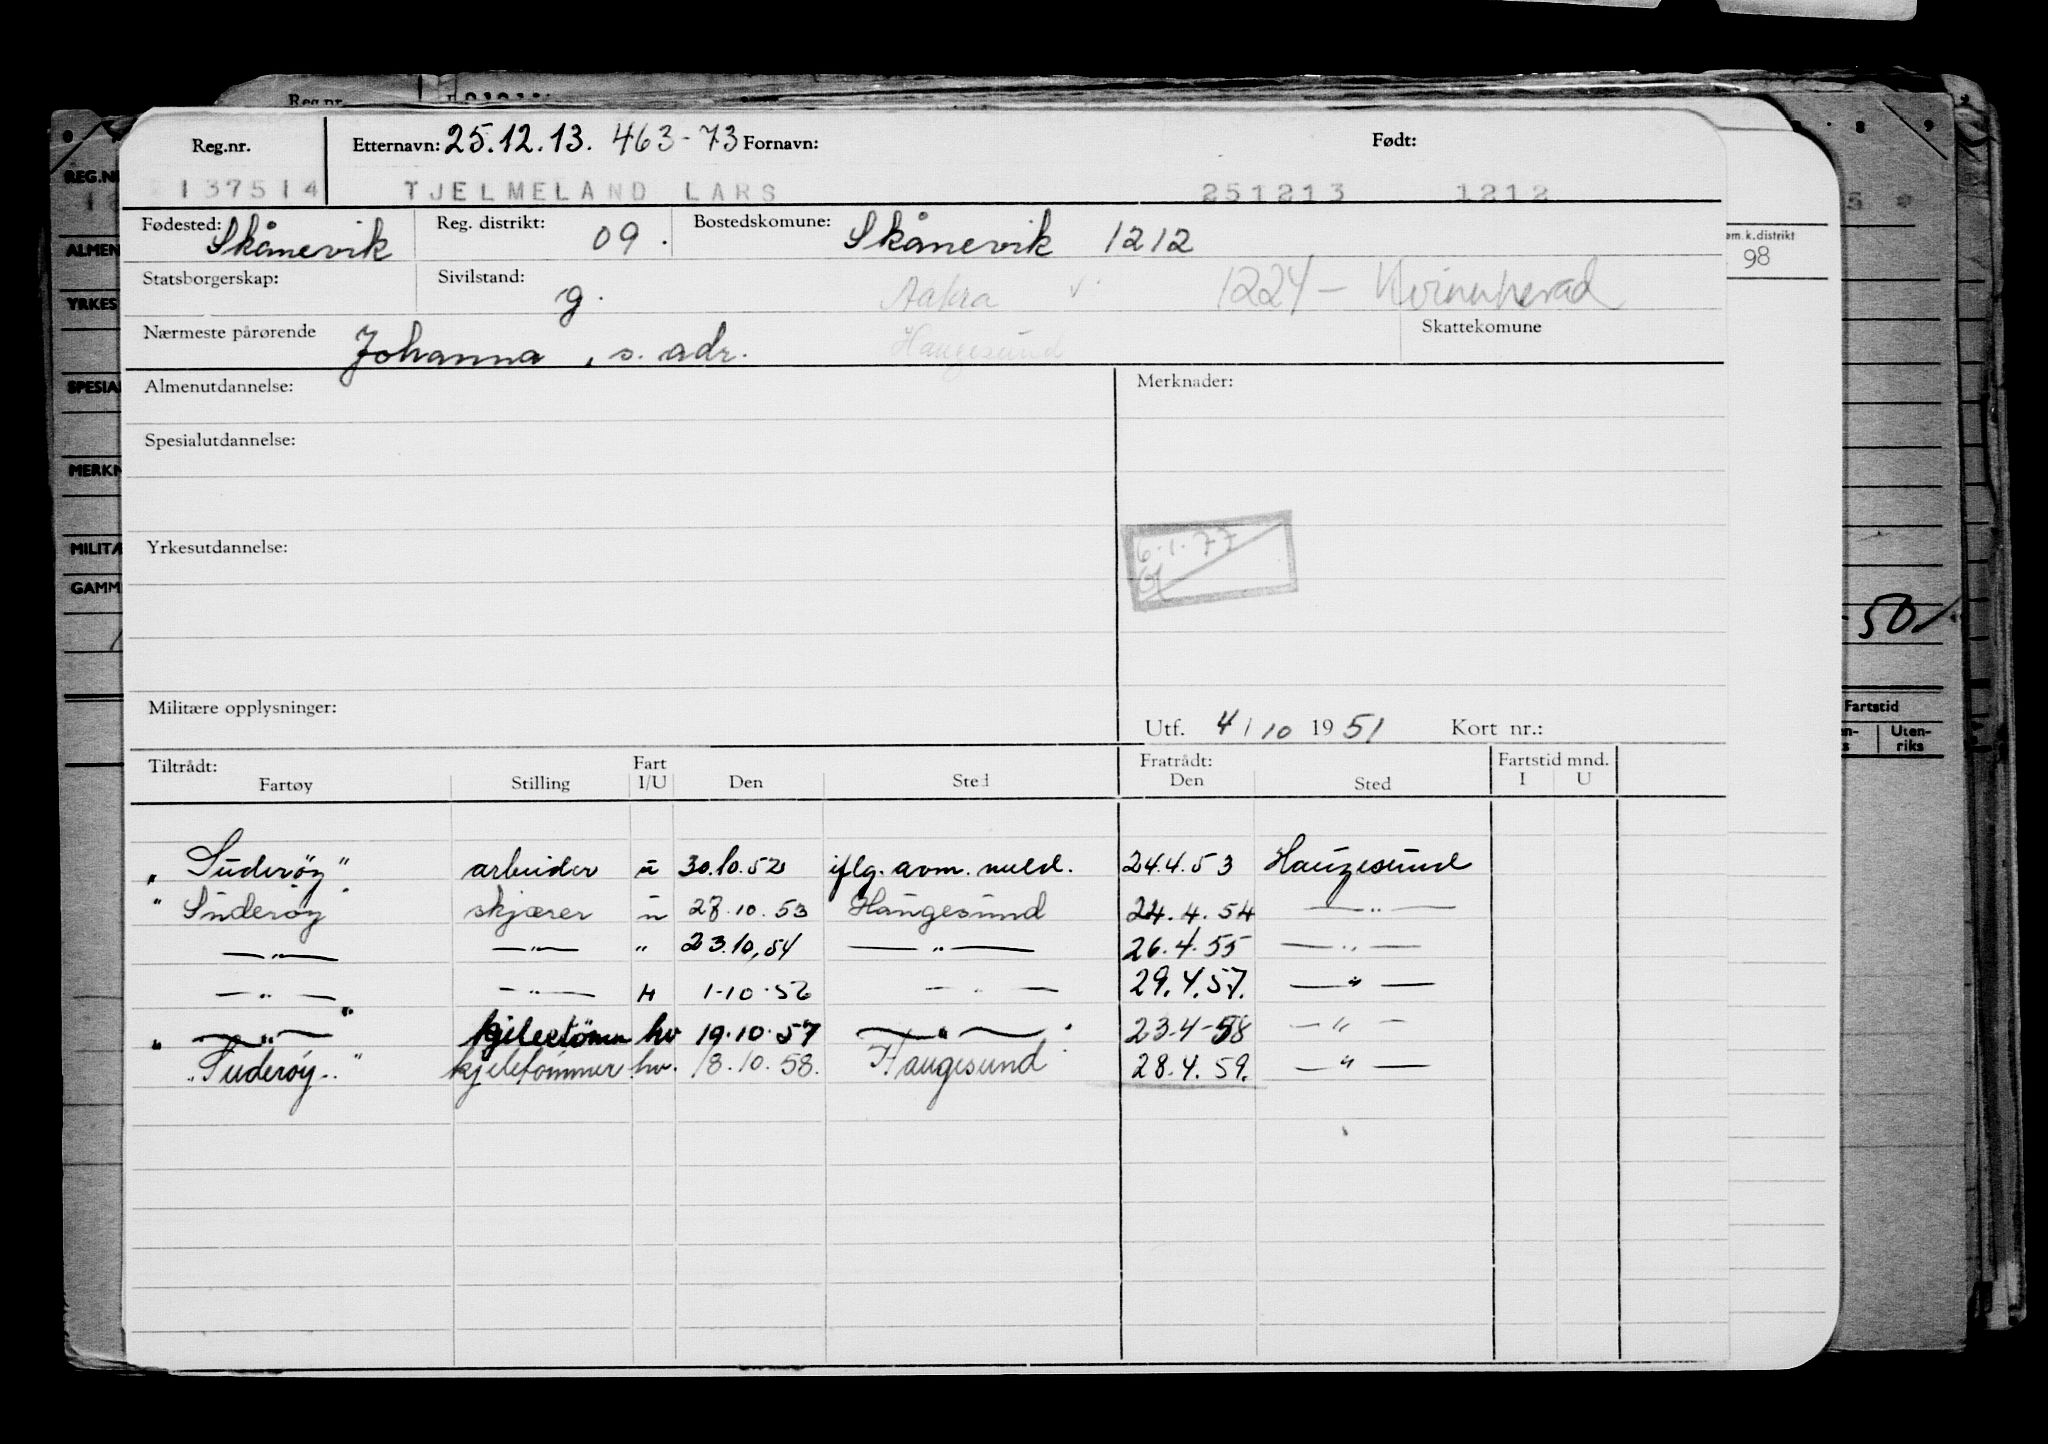 Reg.nr.
Reg.nr. Etternavn: 25.12.13. 463-73 Fornavn: Født:
REG.NR
137514 TJELMELAND LARS 251213 1212
Fødested: Skånevik Reg. distrikt: 09. Bostedskomune: Skånevik 1212
ALMEN
m.k.distrikt
98
Statsborgerskap: Sivilstand: g. Aakra v. 1224 - Kvinnherad
YRKES
Nærmeste pårørende Johanna, s. adr. Haugesund Skattekomune
SPESIA
Almenutdannelse: Merknader:
Spesialutdannelse:
MERKN
Yrkesutdannelse: 6.1.77
MILITÆ
GAMM
50%
Militære opplysninger: Utf. 4/10 1951 Kort nr.:
Fartstid
Uten-
riks
Tiltrådt: Fart Fratrådt: Fartstid mnd.
Fartøy Stilling I/U Den Sted Den Sted I U
"Suderøy" arbeider u 30.10.52 iflg. avm. meld. 24.4.53 Haugesund
" Suderøy " skjærer u 27.10.53 Haugesund 24.4.54 —"—
—"— —"— " 23.10.54 —"— 26.4.55 —"—
—"— —"— H 1-10-56 —"— 29.4.57. —"—
" —"— " kjeletömm hv 19.10.57 —"— 23-4-58 —"—
"Suderøy" kjeletömmer hv. 18.10.58. Haugesund 28.4.59. —"—